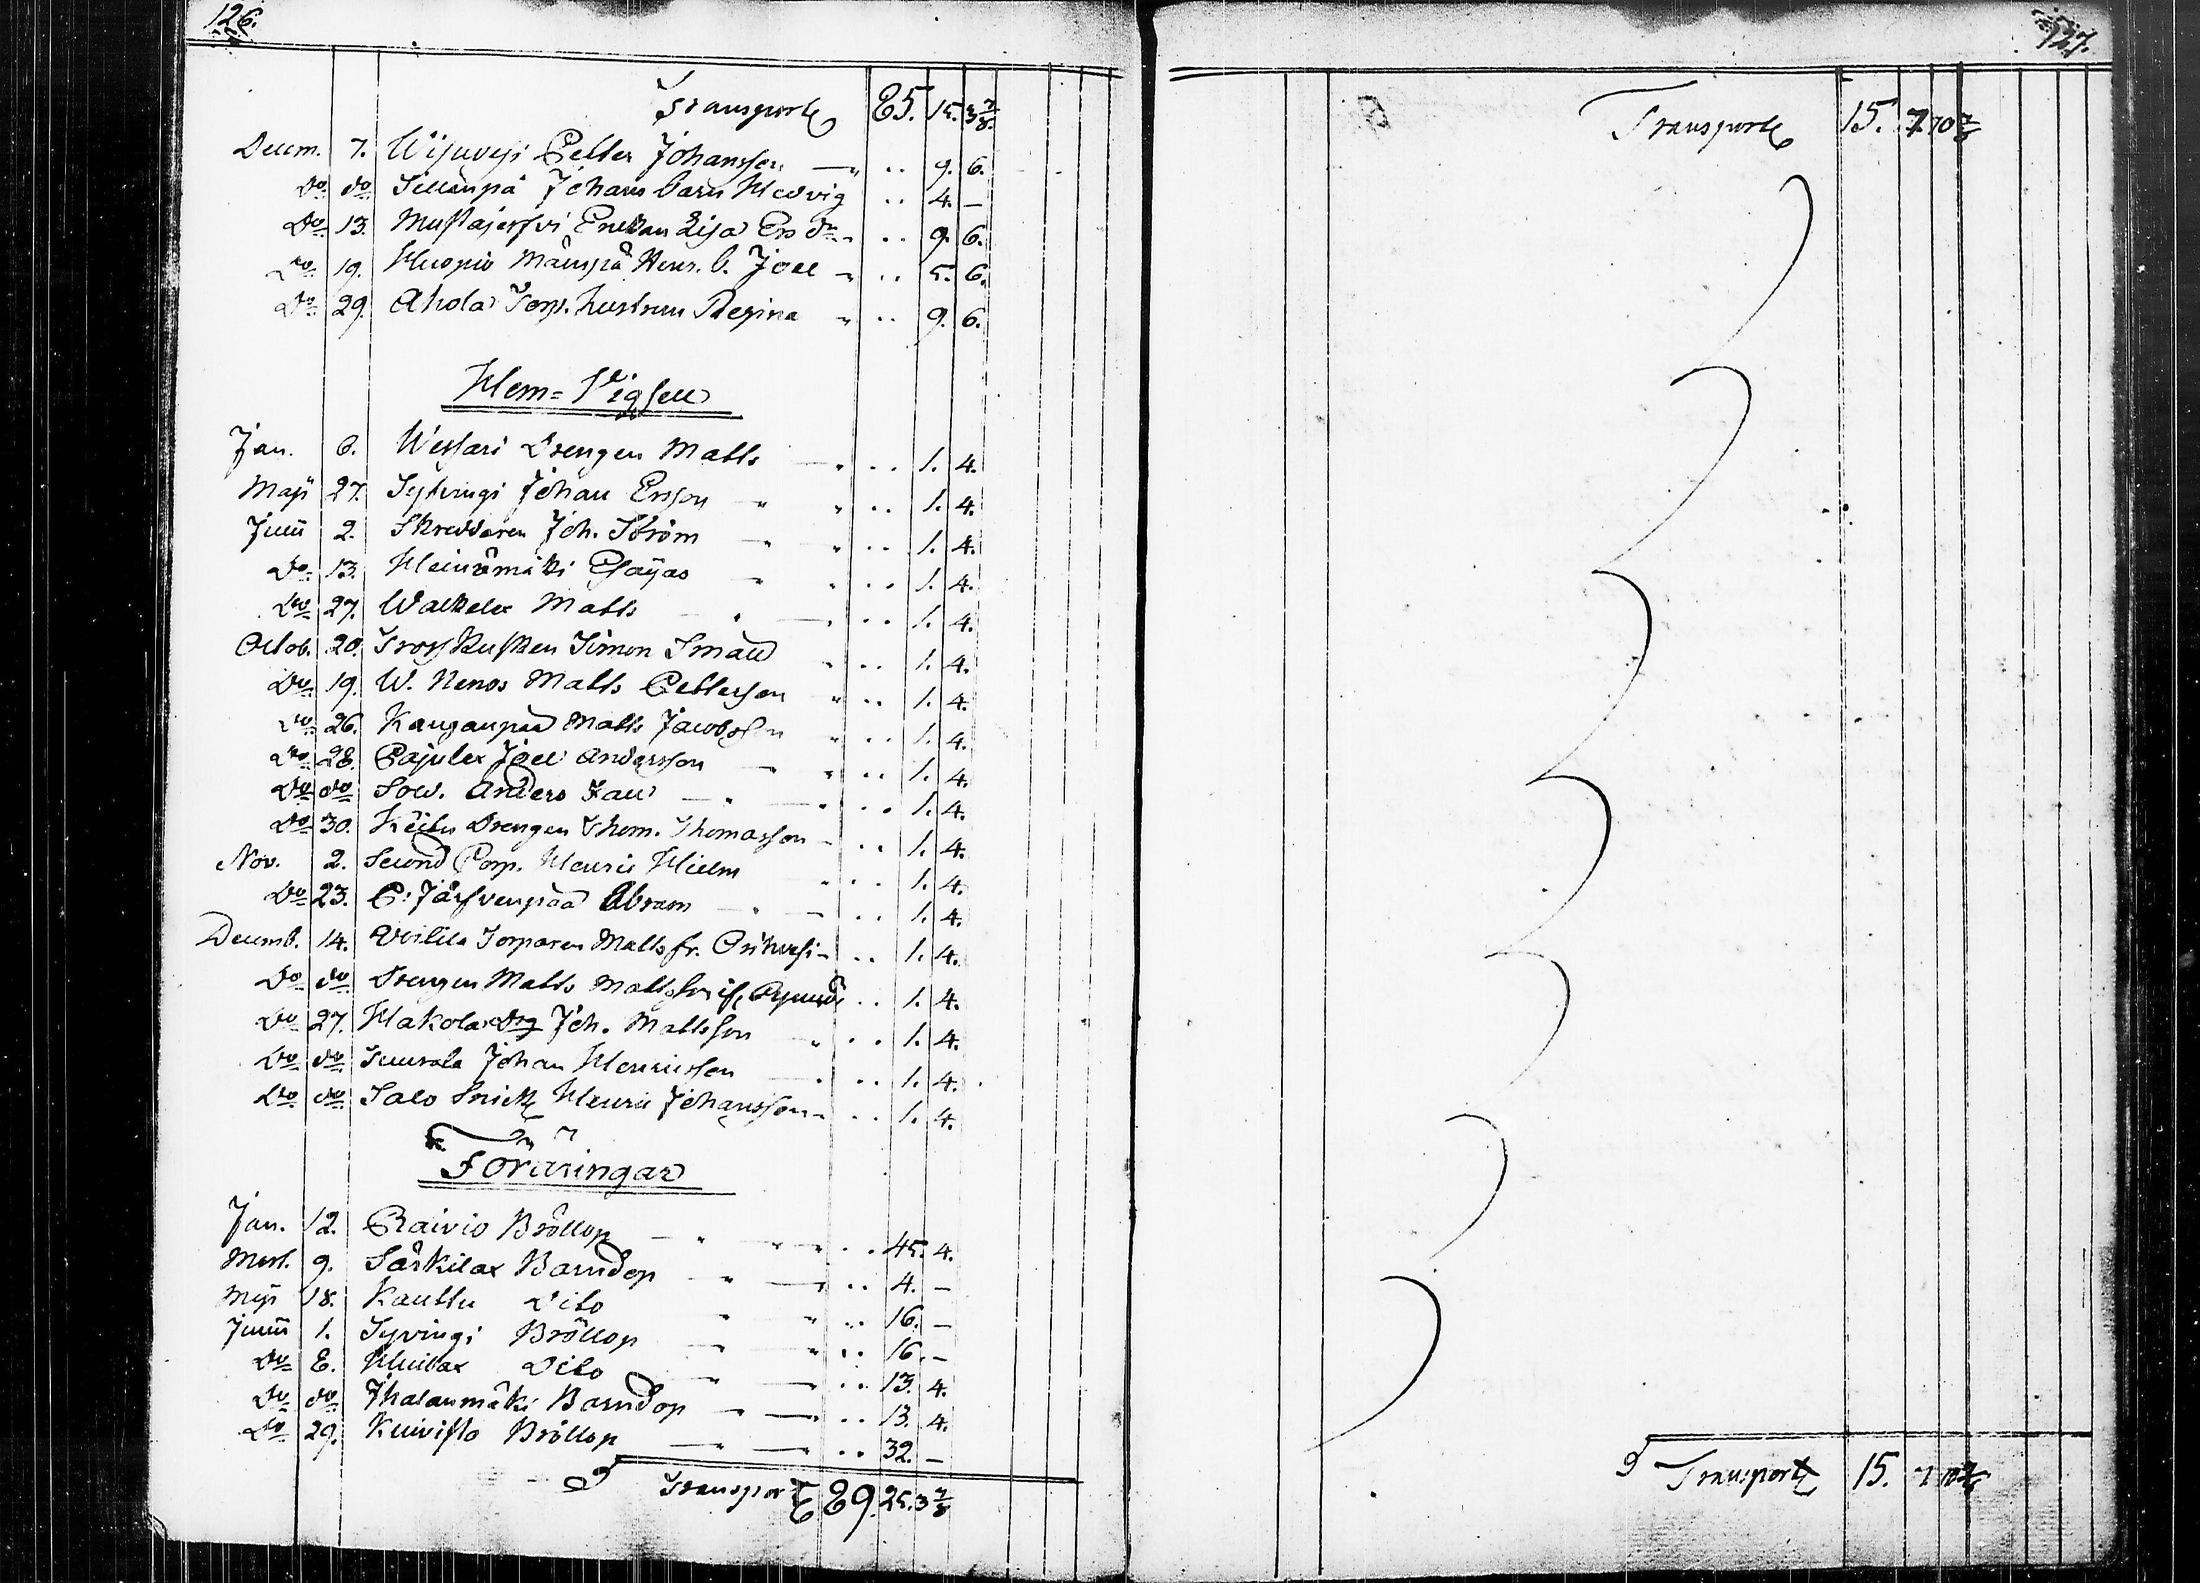 126.
Transport 85. 15. 3 7/8.
Decem. 7. Wijuvesi Petter Johansson " .. 9. 6.
Do do Sillanpä Johans barn Hedvig .. 4. –
Do 13. Mustajerfvi Enckan Lisa Ers dr .. 9. 6.
Do 19. Huopio Mäenpä Henr. b. Joel " .. 5. 6.
Do 29. Ahola Torp. hustrun Regina " .. 9. 6.
Hem=Vigsel
Jan. 6. Wessari Drengen Matts " .. 1. 4.
Maji 27. Syfvingi Johan Ersson " " .. 1. 4.
Junii 2. Skreddaren Joh. Ström " " .. 1. 4.
Do 13. Heinämäki Esaijas " " .. 1. 4.
Do 27. Walkela Matts " " .. 1. 4.
Octob. 20. Trosskusken Simon Smäd " .. 1. 4.
Do 19. W. Nenos Matts Pettersson " .. 1. 4.
Do 26. Kangaupää Matts Jacobsson " .. 1. 4.
Do 28. Pajula Joel Andersson " .. 1. 4.
Do do Sold. Anders " " .. 1. 4.
Do 30. Drengen Thom. Thomasson " .. 1. 4.
Nov. 2. Second Corp. Henric Hielm " .. 1. 4.
Do 23. P. Järfvenpää Abram " .. 1. 4.
Decemb. 14. Torparen Matts fr. .. 1. 4.
Do do Drengen Matts Mattsson if. .. 1. 4.
Do 27. Hakola Drg Joh. Mattsson " .. 1. 4.
Do do Johan Henricsson " .. 1. 4.
Do do Salo Snick Henric Johansson .. 1. 4.
Föräringar
Jan. 12. Raivio Bröllop " " .. 45. 4.
Mart. 9. Särkilax Barndop " " .. 4. –
Maji 18. Kauttu Dito " " .. 16. –
Junii 1. Syvingi Bröllop " " .. 16. –
Do 8. Dito " .. 13. 4.
Do do Ihalanmäki Barndop " .. 13. 4.
Do 29. Kuivisto Bröllop .. 32. –
Transport 89. 25. 3 7/8
127.
Transport 15. 7. 10 7/8
Transport 15. 7 10 7/8